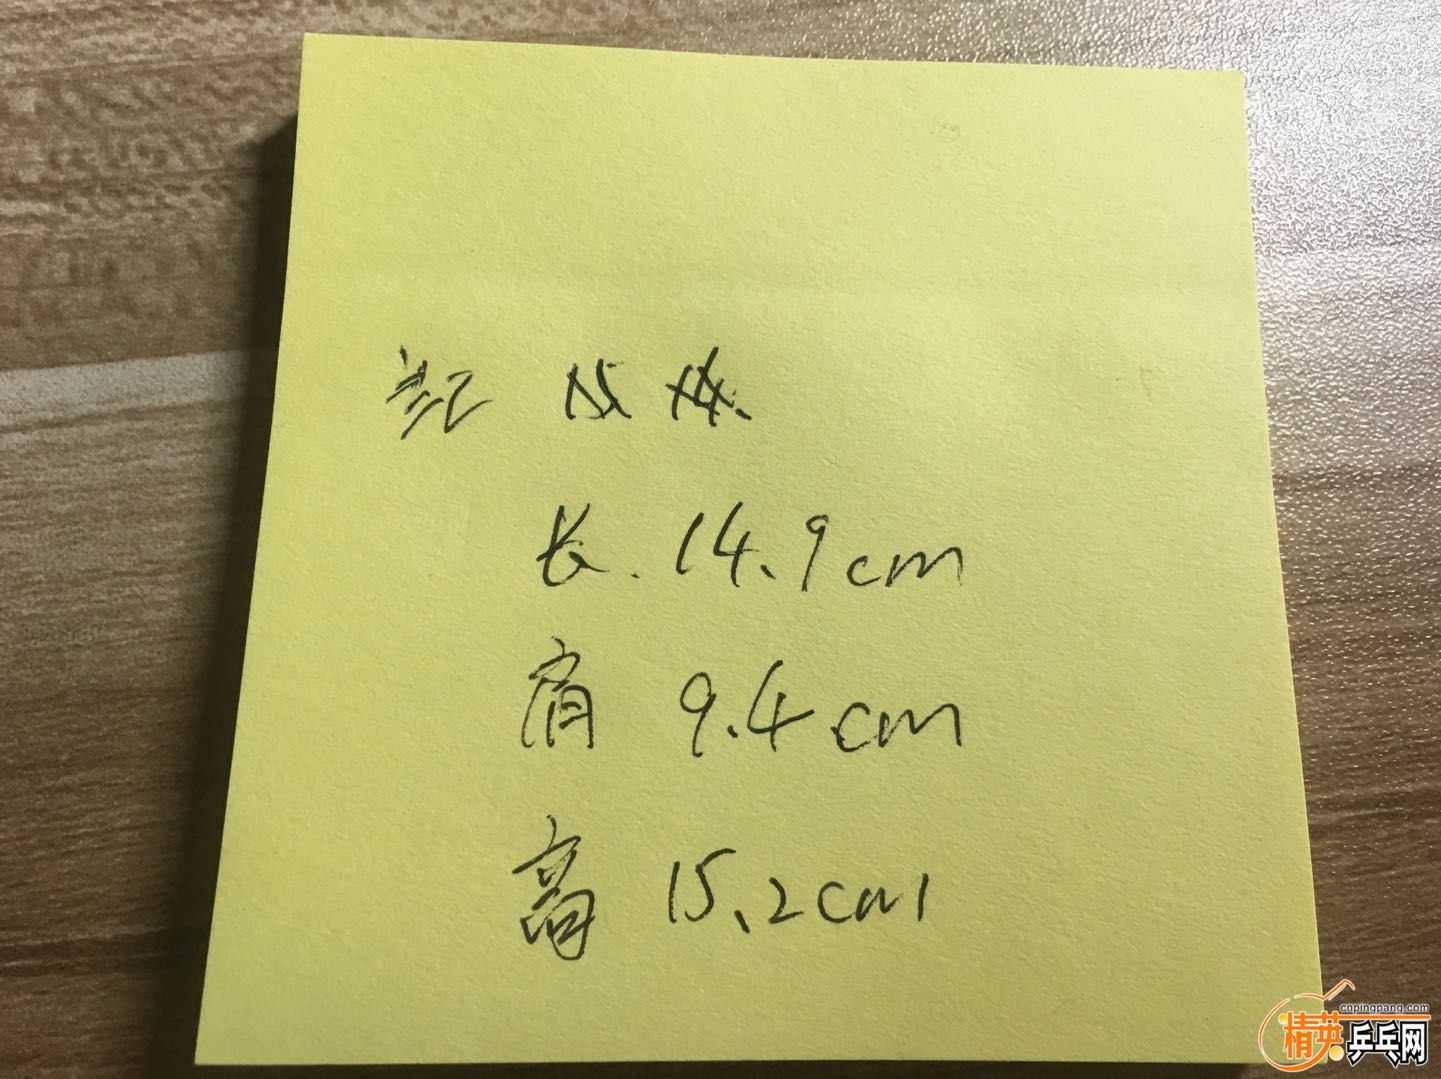 长. 14.9cm
肩 9.4cm
高 15.2cm
cnpingpang.com
精英乒乓网